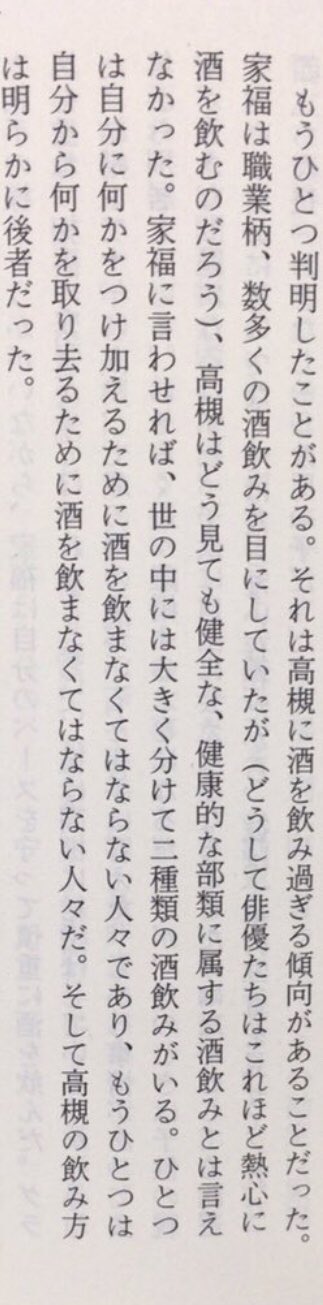 もうひとつ判明したことがある。それは高槻に酒を飲み過ぎる傾向があることだった。
家福は職業柄、数多くの酒飲みを目にしていたが（どうして俳優たちはこれほど熱心に
酒を飲むのだろう）、高槻はどう見ても健全な、健康的な部類に属する酒飲みとは言え
なかった。家福に言わせれば、世の中には大きく分けて二種類の酒飲みがいる。ひとつ
は自分に何かをつけ加えるために酒を飲まなくてはならない人々であり、もうひとつは
自分から何かを取り去るために酒を飲まなくてはならない人々だ。そして高槻の飲み方
は明らかに後者だった。